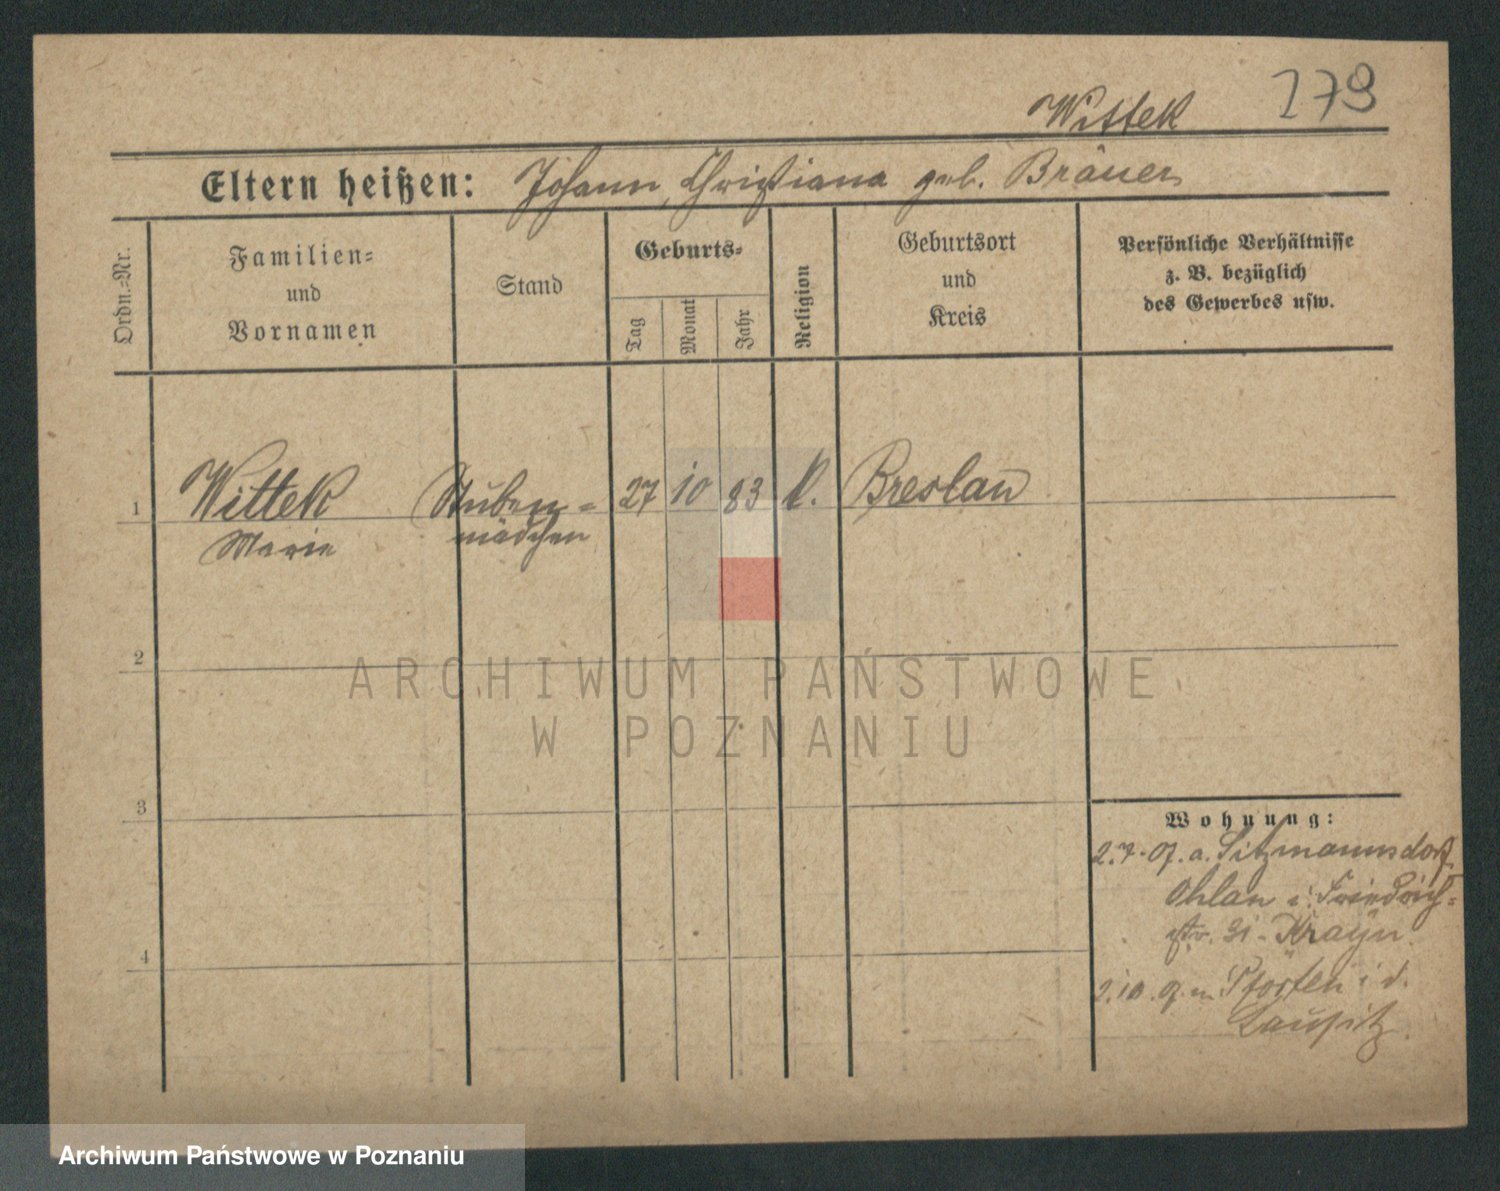 Wittek 179
Eltern heißen: Johann, Christiana geb. Bräuer
Ordn.=Nr.
Familien=
und
Vornamen
Stand
Geburts=
Tag
Monat
Jahr
Religion
Geburtsort
und
Kreis
Persönliche Verhältnisse
z. B. bezüglich
des Gewerbes usw.
1 Wittek Stuben= 27 10 83 k. Breslau
Marie mädchen
2
ARCHIWUM PAŃSTWOWE
W POZNANIU
3
Wohnung:
2.7.07. a. Sitzmannsdorf
Ohlau i. Friedrich=
str. 31 - Krayn
4
2.10.07. n. Pförten i. d.
Lausitz.
Archiwum Państwowe w Poznaniu